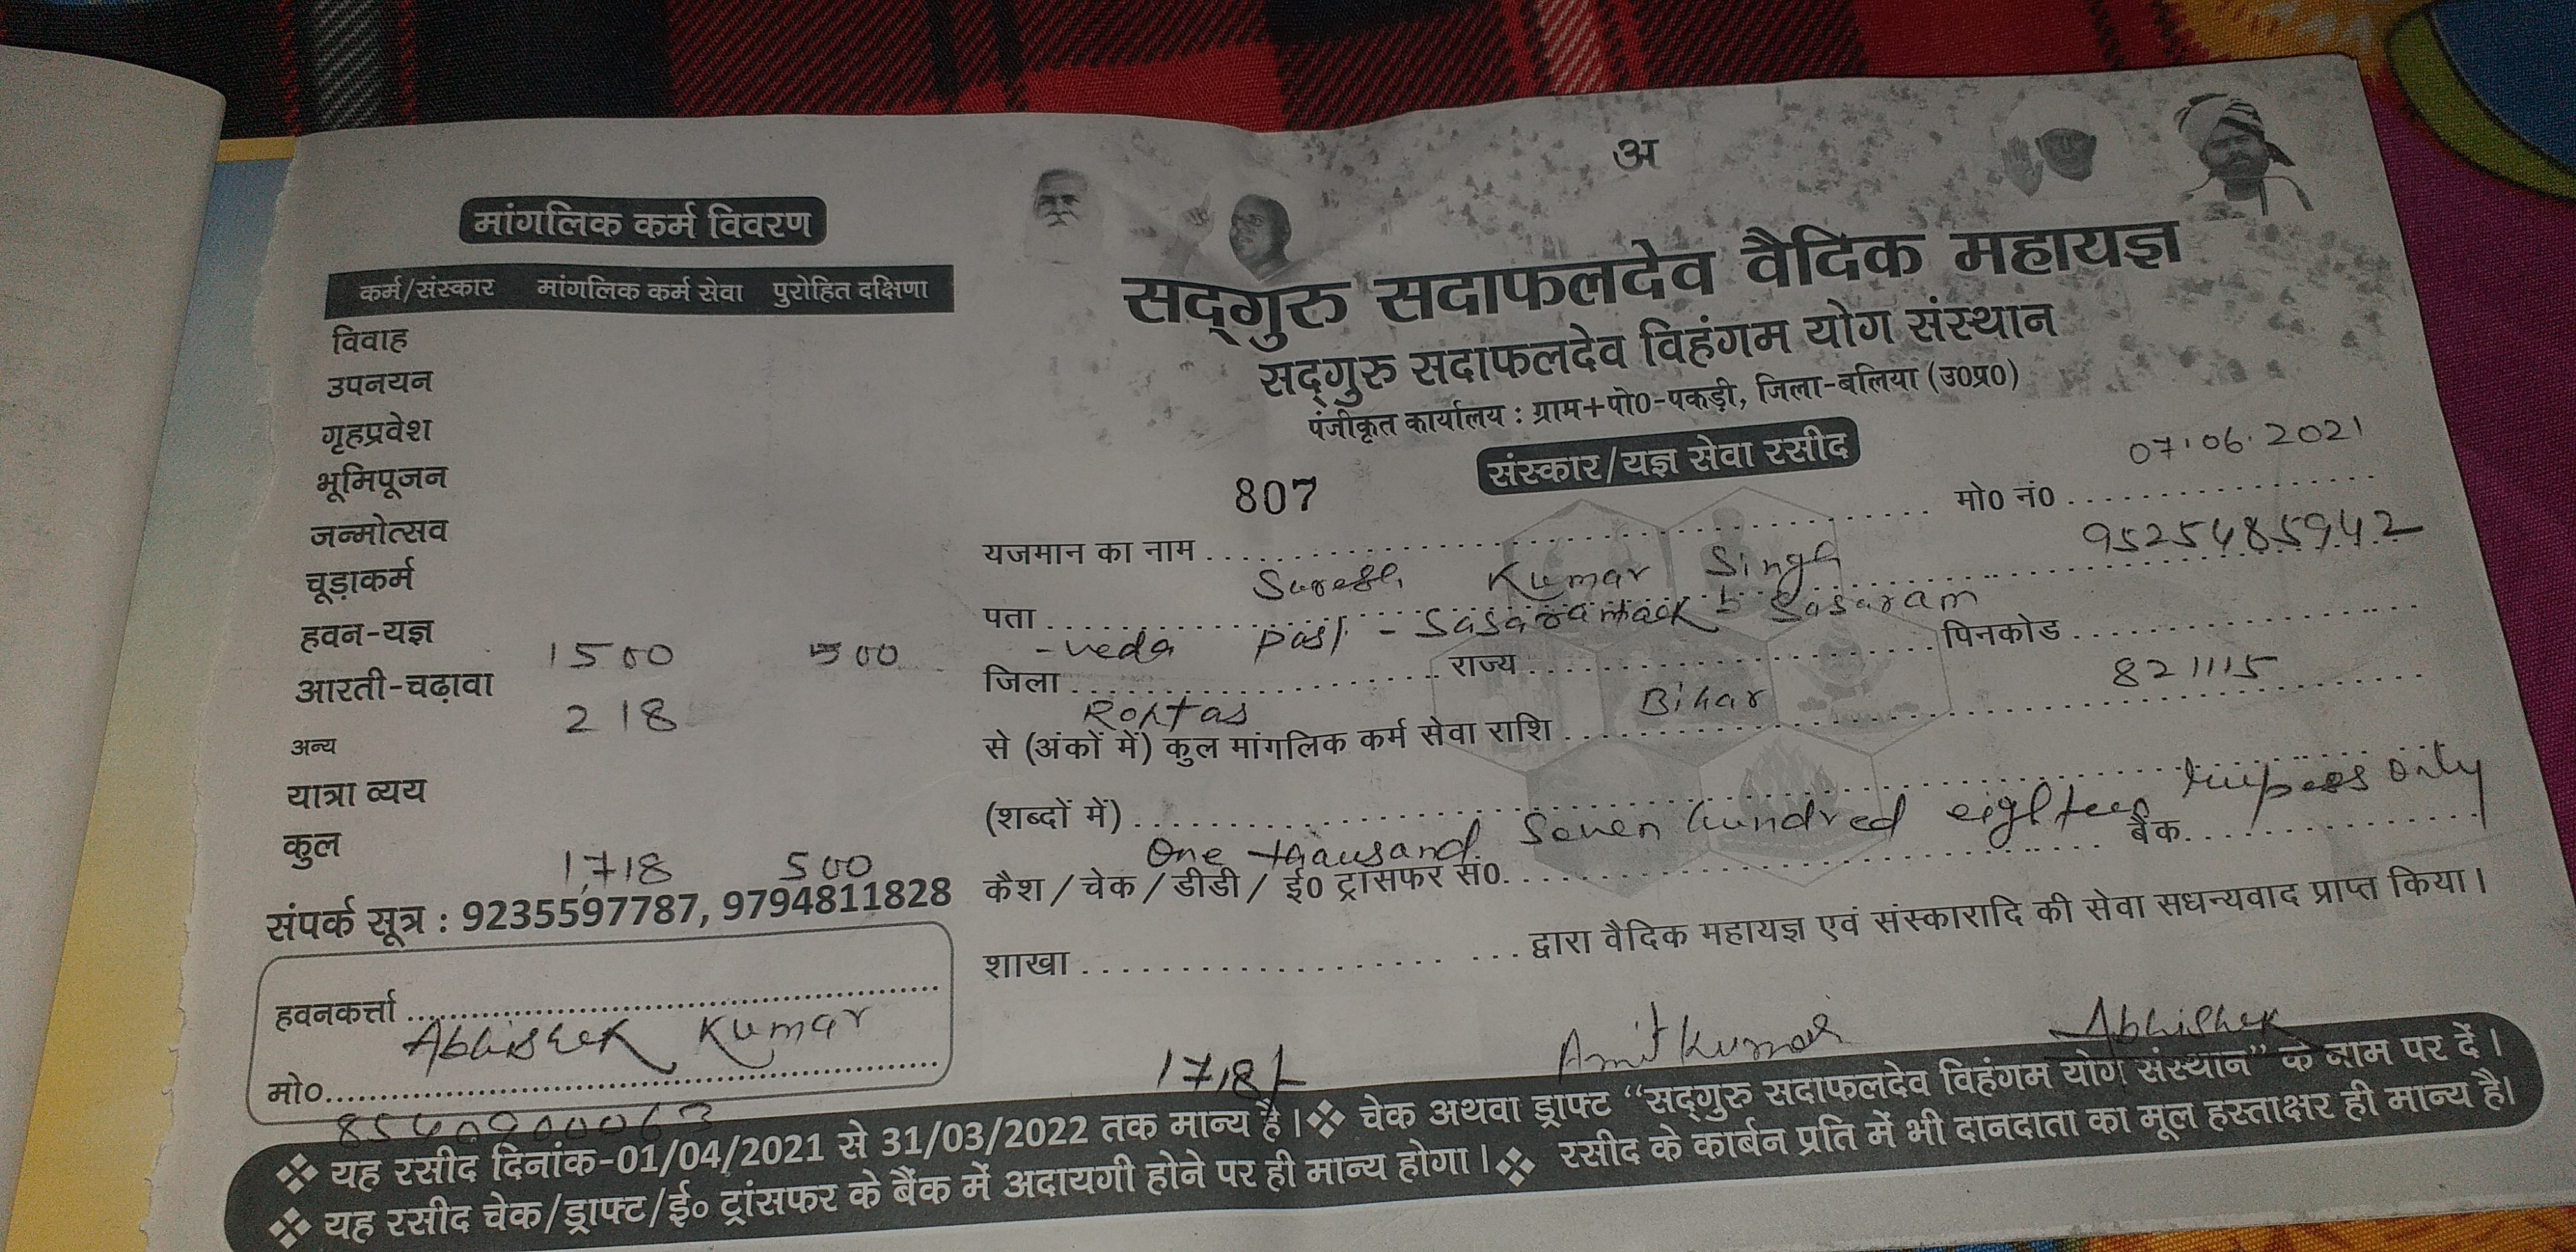 अ
मांगलिक कर्म विवरण
कर्म/संस्कार मांगलिक कर्म सेवा पुरोहित दक्षिणा
विवाह
उपनयन
गृहप्रवेश
भूमिपूजन
जन्मोत्सव
चूड़ाकर्म
हवन-यज्ञ
1500 500
आरती-चढ़ावा
218
अन्य
यात्रा व्यय
कुल
1718 500
संपर्क सूत्र : 9235597787, 9794811828
हवनकर्त्ता
Abhishek Kumar
मो०
सद्गुरु सदाफलदेव वैदिक महायज्ञ
सद्गुरु सदाफलदेव विहंगम योग संस्थान
पंजीकृत कार्यालय : ग्राम+पो0-पकड़ी, जिला-बलिया (उ0प्र0)
807 संस्कार/यज्ञ सेवा रसीद 07.06.2021
यजमान का नाम मो0 नं0
Suresh Kumar Singh 9525485942
पता
-veda post - Sasaram
जिला राज्य पिनकोड
Rohtas Bihar 821115
से (अंकों में) कुल मांगलिक कर्म सेवा राशि
(शब्दों में)
One thausand Seven hundred eighteen rupees only
कैश / चेक / डीडी / ई0 ट्रांसफर सं0. बैंक
शाखा द्वारा वैदिक महायज्ञ एवं संस्कारादि की सेवा सधन्यवाद प्राप्त किया।
1718/- Amit Kumar Abhishek
❖ यह रसीद दिनांक-01/04/2021 से 31/03/2022 तक मान्य है।❖ चेक अथवा ड्राफ्ट “सद्गुरु सदाफलदेव विहंगम योग संस्थान” के नाम पर दें।
❖ यह रसीद चेक/ड्राफ्ट/ई० ट्रांसफर के बैंक में अदायगी होने पर ही मान्य होगा।❖ रसीद के कार्बन प्रति में भी दानदाता का मूल हस्ताक्षर ही मान्य है।